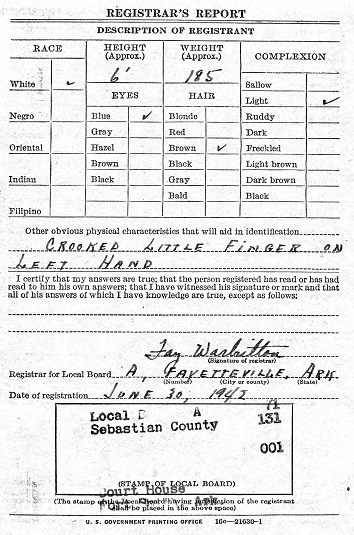 REGISTRAR'S REPORT
DESCRIPTION OF REGISTRANT
RACE HEIGHT (Approx.) WEIGHT (Approx.) COMPLEXION
6' 185
White ✓ EYES HAIR Sallow
Light ✓
Negro Blue ✓ Blonde Ruddy
Gray Red Dark
Oriental Hazel Brown ✓ Freckled
Brown Black Light brown
Indian Black Gray Dark brown
Bald Black
Filipino
Other obvious physical characteristics that will aid in identification
CROOKED LITTLE FINGER ON
LEFT HAND
I certify that my answers are true; that the person registered has read or has had
read to him his own answers; that I have witnessed his signature or mark and that
all of his answers of which I have knowledge are true, except as follows:
Fay Warbritton
(Signature of registrar)
Registrar for Local Board A, FAYETTEVILLE, ARK
(Number) (City or county) (State)
Date of registration JUNE 30, 1942
Local B A 71
Sebastian County 131
001
(STAMP OF LOCAL BOARD)
Court House
(The stamp of the Local Board having jurisdiction of the registrant
shall be placed in the above space)
U. S. GOVERNMENT PRINTING OFFICE 16—21630-1